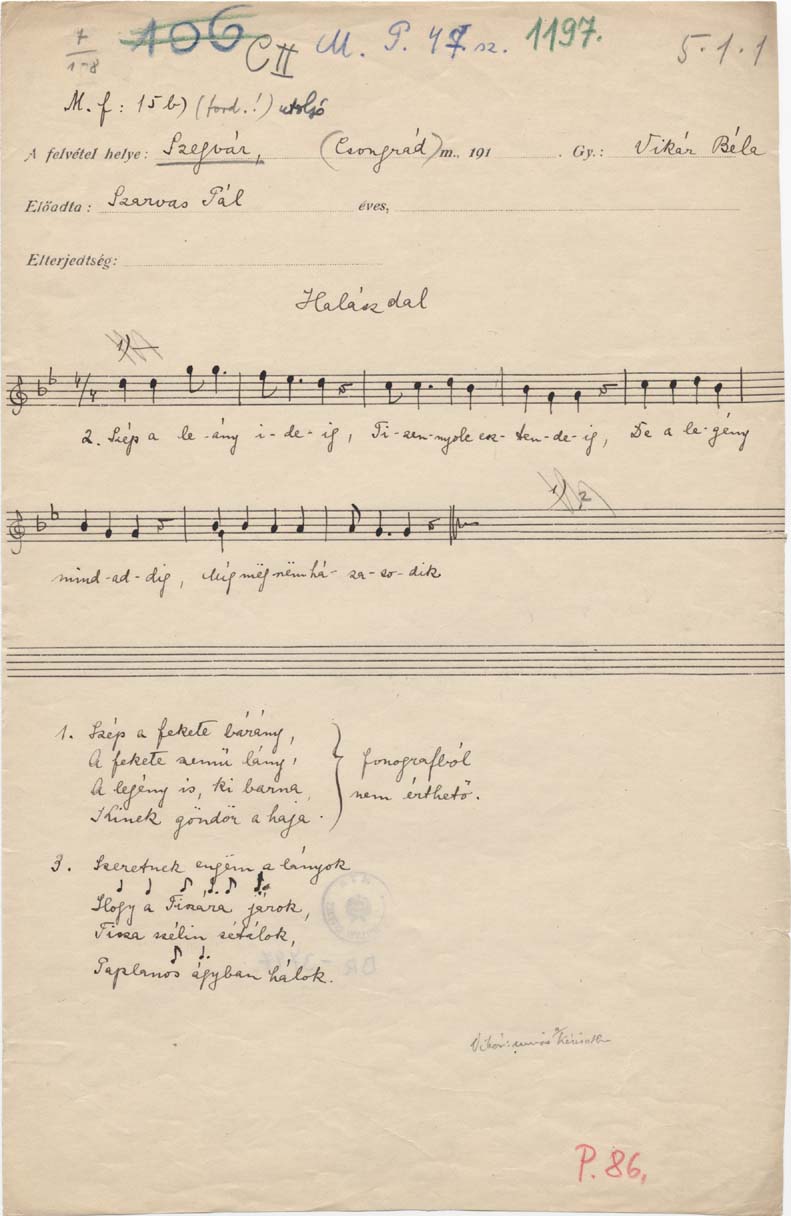 7
1-8
106
C II
M. P. 47 sz.
1197.
5.1.1
M. f: 15 b) (ford.!) utolsó
A felvétel helye: Szegvár, (Csongrád) m., 191 . Gy.: Vikár Béla
Előadta: Szarvas Pál éves,
Elterjedtség:
Halász dal
1)
4/4
2. Szép a le-ány i-de-ig, Ti-zen-nyolc esz-ten-de-ig, De a le-gény
1) 2
mind-ad-dig, Míg mëg nëm há-za-so-dik
1. Szép a fekete bárány,
A fekete szemü lány,
A legény is, ki barna,
Kinek göndör a haja.
fonografból
nem érthető.
3. Szeretnek engëm a lányok
Hogy a Tiszára járok,
Tisza szélin sétálok,
Paplanos ágyban hálok.
Vikár:
P. 86.